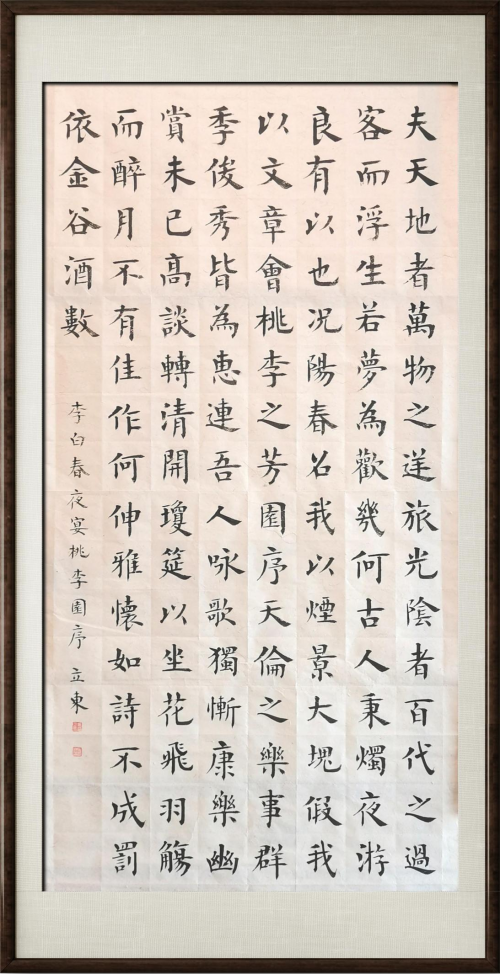 夫天地者萬物之逆旅光陰者百代之過
客而浮生若夢為歡幾何古人秉燭夜游
良有以也况陽春召我以煙景大塊假我
以文章會桃李之芳園序天倫之樂事群
季俊秀皆為惠連吾人咏歌獨慚康樂幽
賞未已高談轉清開瓊筵以坐花飛羽觴
而醉月不有佳作何伸雅懷如詩不成罰
依金谷酒數
李白春夜宴桃李園序 立東